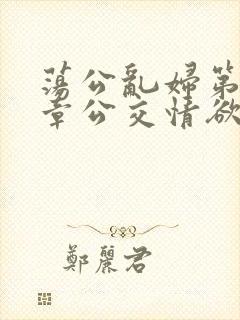 蕩公亂婦第
章公交情欲
鄭麗君